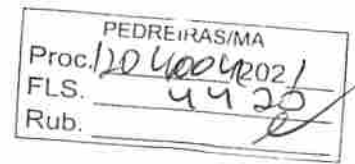 PEDREIRAS/MA
Proc. 1204004/2021
FLS. 4420
Rub.